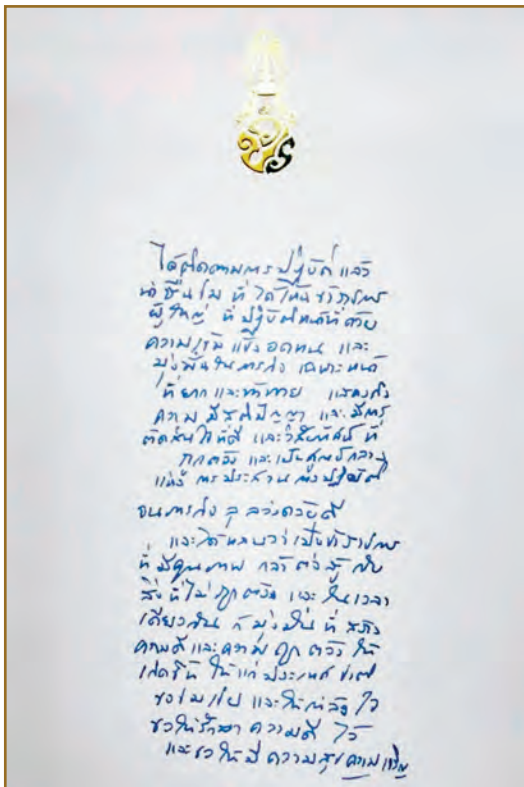 ได้ติดตามการปฏิบัติ แล้ว
น่าชื่นชม ที่ได้เห็นข้าราชการ
ผู้ใหญ่ ที่ปฏิบัติหน้าที่ด้วย
ความเข้มแข็ง อดทน และ
มุ่งมั่นในภารกิจ เฉพาะหน้า
ที่ยากและท้าทาย แสดงถึง
ความมีสติปัญญา และมีการ
ตัดสินใจที่ดี และวิสัยทัศน์ ที่
ถูกต้อง และเป็นศูนย์กลาง
แห่งการประสานการปฏิบัติ
จนภารกิจลุล่วงด้วยดี
และได้เห็นว่าเป็นข้าราชการ
ที่มีคุณภาพ กล้าต่อสู้กับ
สิ่งที่ไม่ถูกต้อง และในเวลา
เดียวกัน ก็มุ่งมั่นที่สร้าง
ความดีและความถูกต้อง ให้
เกิดขึ้น ให้แก่ประเทศชาติ
ขอชมเชย และให้กำลังใจ
ขอให้รักษาความดีไว้
และขอให้มีความสุขความเจริญ